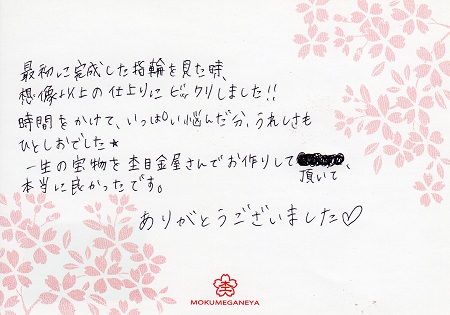 最初に完成した指輪を見た時、
想像以上の仕上りにビックリしました!!
時間をかけて、いっぱい悩んだ分、うれしさも
ひとしおでした★
一生の宝物を杢目金屋さんでお作りして頂いて、
本当に良かったです。
ありがとうございました♡
杢
MOKUMEGANEYA